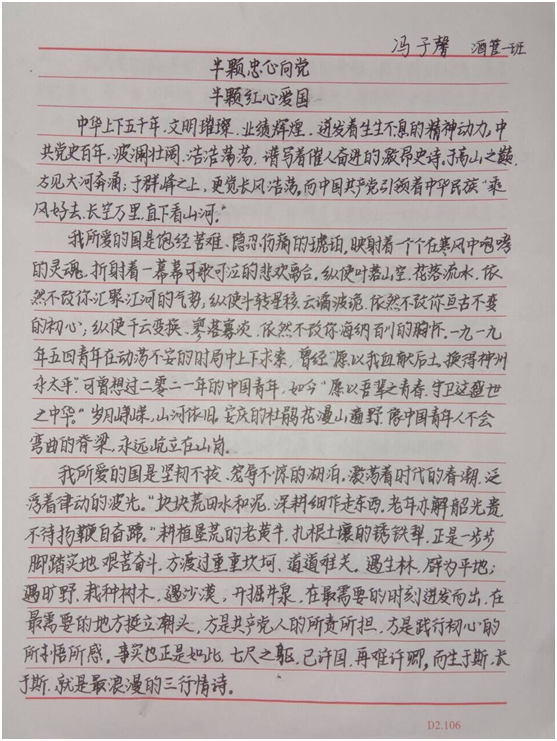 冯子馨 酒管一班
半颗忠心向党
半颗红心爱国
中华上下五千年，文明璀璨，业绩辉煌，迸发着生生不息的精神动力。中
共党史百年，波澜壮阔，浩浩荡荡，谱写着催人奋进的激昂史诗。于高山之巅，
方见大河奔涌；于群峰之上，更觉长风浩荡。而中国共产党引领着中华民族“乘
风好去，长空万里，直下看山河。”
我所爱的国是饱经苦难、隐忍伤痛的琥珀，映射着一个个在寒风中咆哮
的灵魂，折射着一幕幕可歌可泣的悲欢离合。纵使叶落山空，花落流水，依
然不改你汇聚江河的气势；纵使斗转星移，云谲波诡，依然不改你亘古不变
的初心；纵使千云变换，寥落寡淡，依然不改你海纳百川的胸怀。一九一九
年五四青年在动荡不安的时局中上下求索，曾经“愿以我血献后土，换得神州
永太平”，可曾想过二零二一年的中国青年，如今“愿以吾辈之青春，守卫这盛世
之中华。”岁月峥嵘，山河依旧。安庆的杜鹃花漫山遍野，像中国青年人不会
弯曲的脊梁，永远屹立在山岗。
我所爱的国是坚韧不拔、宠辱不惊的湖泊，激荡着时代的春潮，泛
着律动的波光。“块块荒田水和泥，深耕细作走东西，老牛亦解韶光贵，
不待扬鞭自奋蹄。”耕植垦荒的老黄牛，扎根土壤的锈铁犁，正是一步步
脚踏实地，艰苦奋斗，方渡过重重坎坷，道道难关。遇生林，辟为平地；
遇旷野，栽种树木，遇沙漠，开掘井泉，在最需要的时刻迸发而出，在
最需要的地方挺立潮头，方是共产党人的所责所担，方是践行初心的
所悟所感。事实也正是如此，七尺之躯，已许国，再难许卿，而生于斯，长
于斯，就是最浪漫的三行情诗。
D2.106